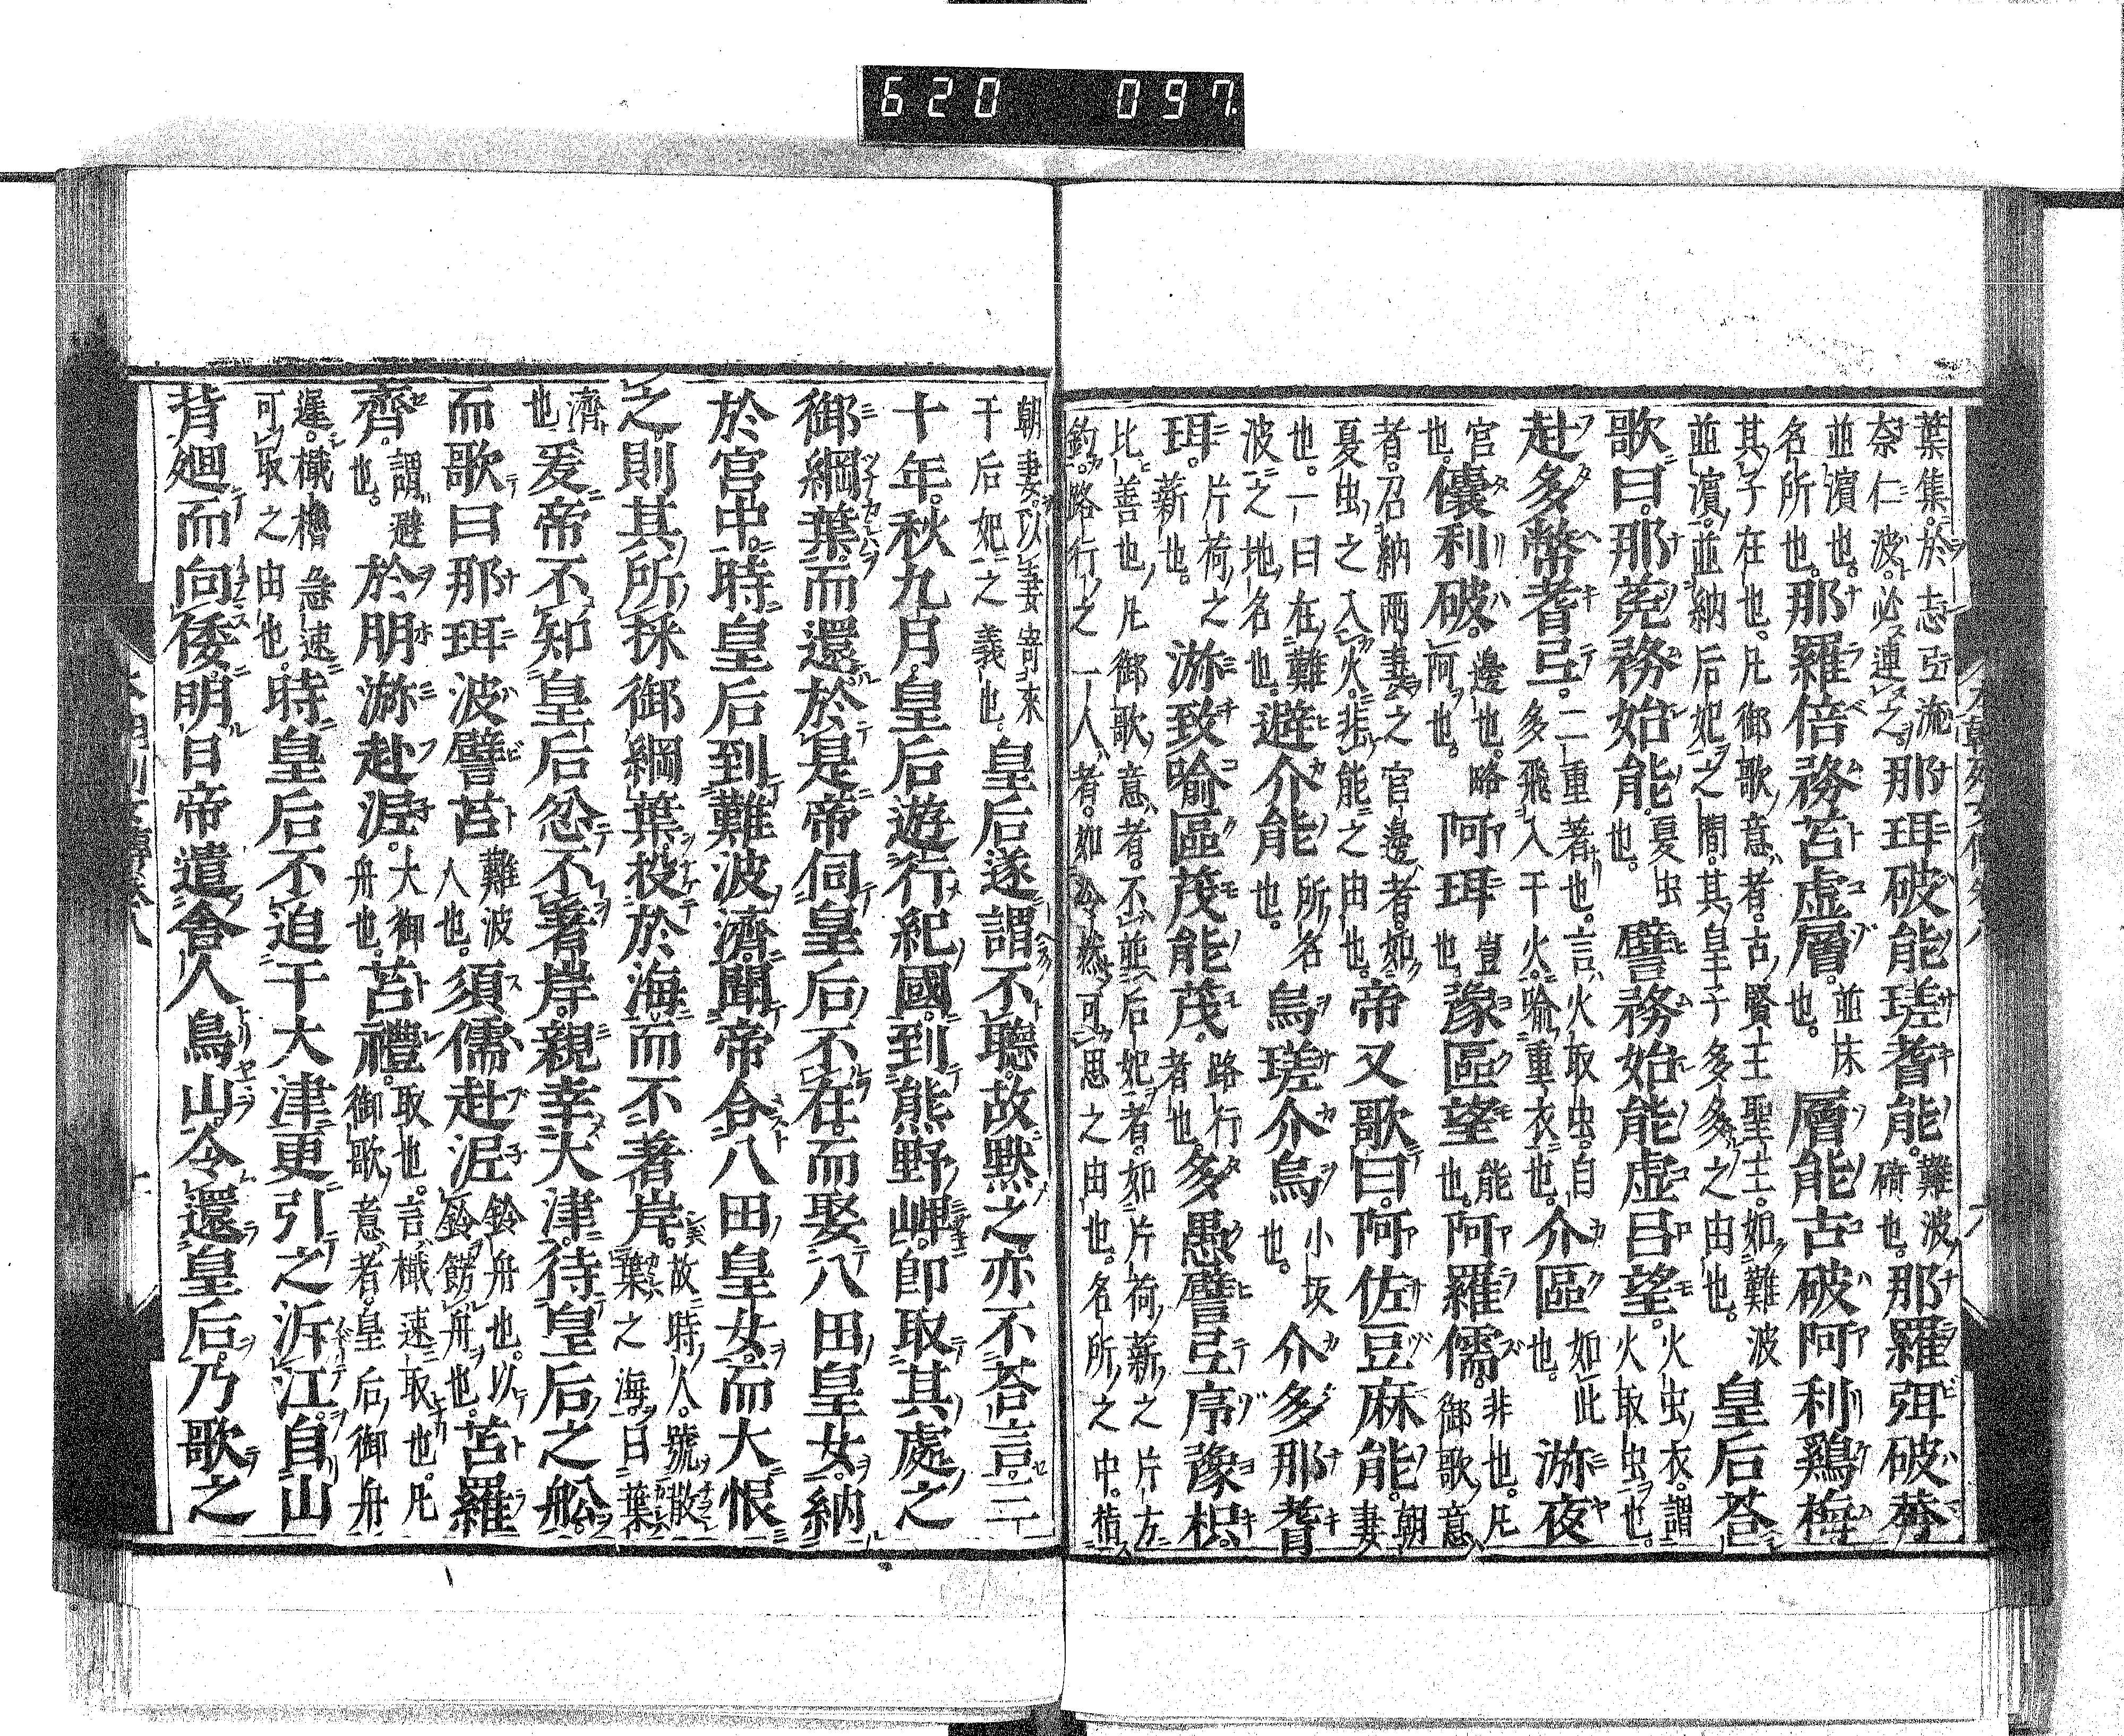 620 097.
葉集於志亞㳽
奈仁波必連之那珥破能瑳耆能難波碕也那羅弭破莾
並濱也
名所也那羅倍務苫虚層並床也層能古破阿利鷄梅
其子在也凡御歌意者古賢王聖主如難波
並濱並納后妃之間其皇子多多之由也皇后荅
歌曰那菟務始能夏虫也譬務始能虚呂望火虫衣謂火取虫也
赴多幣耆弖二重著也言火取虫自多飛入于火喩重衣也介區如此也㳽夜
官也儴利破邊也略阿也阿珥豈也豫區望能也阿羅儒非也凡御歌意
者召納两妻之官邊者如
夏虫之入火悲能之由也帝又歌曰阿佐豆麻能朝妻
也一曰在難波之地名也避介能所名也烏瑳介烏小坂也介多那耆
珥片荷之薪也㳽致喩區茂能茂路行者也多愚譬弖序豫枳
比善也凡御歌意者不並后妃者如片荷薪之片方
釣路行之一人者如冷然可思之由也名所之中楂
朝妻以妻寄來
于后妃之義也皇后遂謂不聽故默之亦不荅言三
十年秋九月皇后遊行紀國到熊野岬即取其處之
御綱葉而還於是帝伺皇后不在而娶八田皇女納
於宮中時皇后到難波濟聞帝合八田皇女而大恨
之則其所採御綱葉投於海而不著岸故時人號散葉之海曰葉
濟也爰帝不知皇后忿不著岸親幸大津待皇后之舩
而歌曰那珥波譬苫難波人也須儒赴泥鈴舟也以鈴餝舟也苫羅
齊謂避也於朋㳽赴泥大御舟也苫禮取也言檝速取也凡御歌意者皇后御舟
遲檝櫓急速
可取之由也時皇后不迫于大津更引之泝江自山
背廻而向倭明日帝遣舍人鳥山令還皇后乃歌之